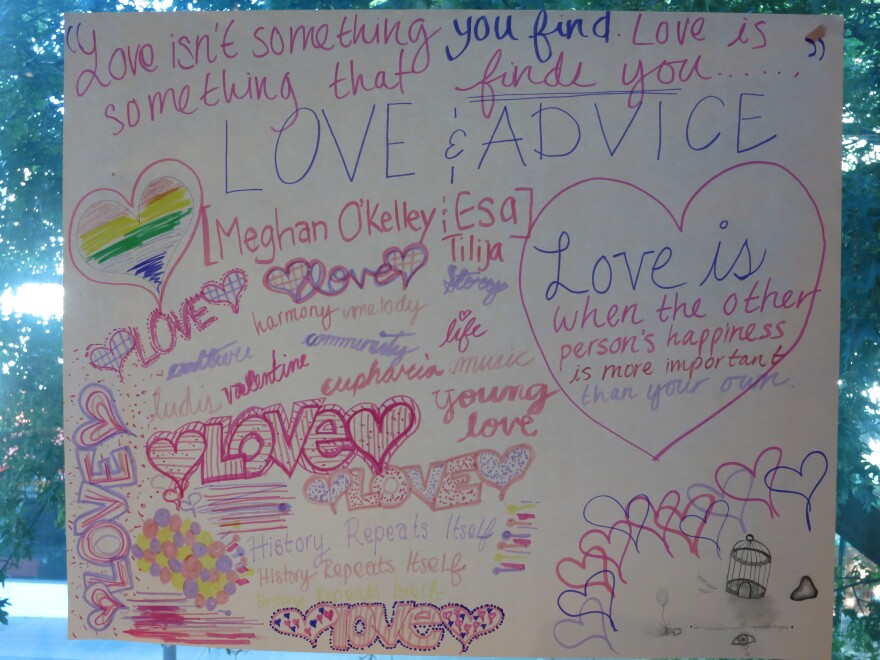 “Love isn't something you find. Love is
something that finds you...... ”
LOVE & ADVICE
[Meghan O'Kelley & Esa]
Tilija
love
Story
LOVE
harmony melody
life
culture
community
ludis
valentine
euphoria
music
young
love
Love is
when the other
person's happiness
is more important
than your own.
LOVE
LOVE
LOVE
History Repeats Itself
History Repeats Itself
History Repeats Itself
love